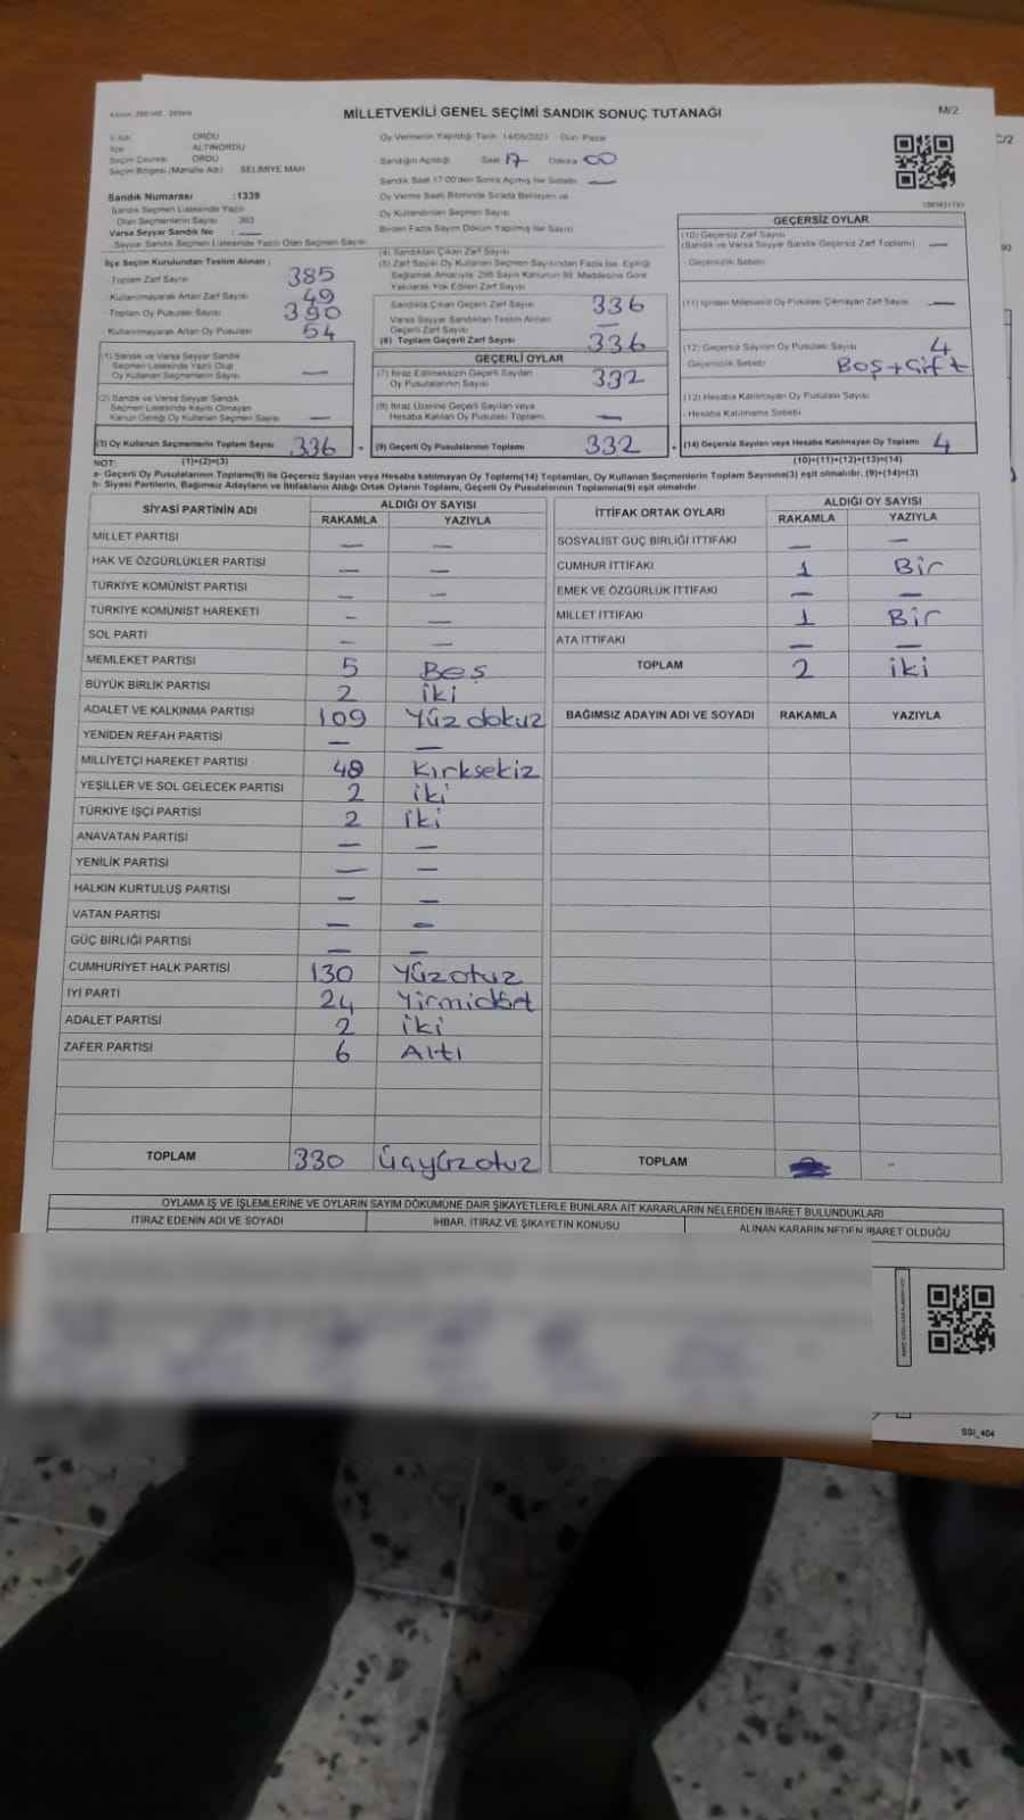 MİLLETVEKİLİ GENEL SEÇİMİ SANDIK SONUÇ TUTANAĞI
M/2
ORDU
ALTINORDU
ORDU
Seçim Bölgesi (Mahalle Adı) SELİMİYE MAH
Oy Vermenin Yapıldığı Tarih 14/05/2023 Gün Pazar
Sandığın Açıldığı Saat 17 Dakika 00
Sandık Saat 17:00'den Sonra Açılmış İse Sebebi —
Sandık Numarası :1339
Sandık Seçmen Listesinde Yazılı
Olan Seçmenlerin Sayısı 383
Varsa Seyyar Sandık No : —
Seyyar Sandık Seçmen Listesinde Yazılı Olan Seçmen Sayısı
Oy Kullandıran Seçmen Sayısı
Birden Fazla Sayım Döküm Yapılmış İse Sayısı
İlçe Seçim Kurulundan Teslim Alınan :
Toplam Zarf Sayısı 385
Kullanılmayarak Artan Zarf Sayısı 49
Toplam Oy Pusulası Sayısı 390
Kullanılmayarak Artan Oy Pusulası 54
(1) Sandık ve Varsa Seyyar Sandık
Seçmen Listesinde Yazılı Olup
Oy Kullanan Seçmenlerin Sayısı —
(2) Sandık ve Varsa Seyyar Sandık
Seçmen Listesinde Kaydı Olmayan
Kanun Gereği Oy Kullanan Seçmen Sayısı —
(3) Oy Kullanan Seçmenlerin Toplam Sayısı 336
(4) Sandıktan Çıkan Zarf Sayısı
(5) Zarf Sayısı Oy Kullanan Seçmen Sayısından Fazla İse, Eşitliği
Sağlamak Amacıyla 298 Sayılı Kanunun 98. Maddesine Göre
Yakılarak Yok Edilen Zarf Sayısı
Sandıkta Çıkan Geçerli Zarf Sayısı 336
Varsa Seyyar Sandıktan Teslim Alınan
Geçerli Zarf Sayısı —
(6) Toplam Geçerli Zarf Sayısı 336
GEÇERLİ OYLAR
(7) İtiraz Edilmeksizin Geçerli Sayılan
Oy Pusulalarının Sayısı 332
(8) İtiraz Üzerine Geçerli Sayılan veya
Hesaba Katılan Oy Pusulası Toplamı —
(9) Geçerli Oy Pusulalarının Toplamı 332
GEÇERSİZ OYLAR
(10) Geçersiz Zarf Sayısı
(Sandık ve Varsa Seyyar Sandık Geçersiz Zarf Toplamı) —
Geçersizlik Sebebi
(11) İçinden Milletvekili Oy Pusulası Çıkmayan Zarf Sayısı —
(12) Geçersiz Sayılan Oy Pusulası Sayısı 4
Geçersizlik Sebebi Boş+Çift
(13) Hesaba Katılmayan Oy Pusulası Sayısı
- Hesaba Katılmama Sebebi
(14) Geçersiz Sayılan veya Hesaba Katılmayan Oy Toplamı 4
NOT: (1)+(2)=(3)
(10)+(11)+(12)+(13)=(14)
a- Geçerli Oy Pusulalarının Toplamı(9) ile Geçersiz Sayılan veya Hesaba katılmayan Oy Toplamı(14) Toplamları, Oy Kullanan Seçmenlerin Toplam Sayısına(3) eşit olmalıdır. (9)+(14)=(3)
b- Siyasi Partilerin, Bağımsız Adayların ve İttifakların Aldığı Ortak Oyların Toplamı, Geçerli Oy Pusulalarının Toplamına(9) eşit olmalıdır
SİYASİ PARTİNİN ADI
ALDIĞI OY SAYISI
RAKAMLA YAZIYLA
MİLLET PARTİSİ — —
HAK VE ÖZGÜRLÜKLER PARTİSİ — —
TÜRKİYE KOMÜNİST PARTİSİ — —
TÜRKİYE KOMÜNİST HAREKETİ — —
SOL PARTİ — —
MEMLEKET PARTİSİ 5 Beş
BÜYÜK BİRLİK PARTİSİ 2 iki
ADALET VE KALKINMA PARTİSİ 109 Yüz dokuz
YENİDEN REFAH PARTİSİ — —
MİLLİYETÇİ HAREKET PARTİSİ 48 Kırksekiz
YEŞİLLER VE SOL GELECEK PARTİSİ 2 iki
TÜRKİYE İŞÇİ PARTİSİ 2 iki
ANAVATAN PARTİSİ — —
YENİLİK PARTİSİ — —
HALKIN KURTULUŞ PARTİSİ — —
VATAN PARTİSİ — —
GÜÇ BİRLİĞİ PARTİSİ — —
CUMHURİYET HALK PARTİSİ 130 Yüzotuz
İYİ PARTİ 24 Yirmidört
ADALET PARTİSİ 2 iki
ZAFER PARTİSİ 6 Altı
TOPLAM 330 üçyüzotuz
İTTİFAK ORTAK OYLARI
ALDIĞI OY SAYISI
RAKAMLA YAZIYLA
SOSYALİST GÜÇ BİRLİĞİ İTTİFAKI — —
CUMHUR İTTİFAKI 1 Bir
EMEK VE ÖZGÜRLÜK İTTİFAKI — —
MİLLET İTTİFAKI 1 Bir
ATA İTTİFAKI — —
TOPLAM 2 iki
BAĞIMSIZ ADAYIN ADI VE SOYADI RAKAMLA YAZIYLA
TOPLAM -
OYLAMA İŞ VE İŞLEMLERİNE VE OYLARIN SAYIM DÖKÜMÜNE DAİR ŞİKAYETLERLE BUNLARA AİT KARARLARIN NELERDEN İBARET BULUNDUKLARI
İTİRAZ EDENİN ADI VE SOYADI
İHBAR, İTİRAZ VE ŞİKAYETİN KONUSU
ALINAN KARARIN NEDEN İBARET OLDUĞU
SSI_404